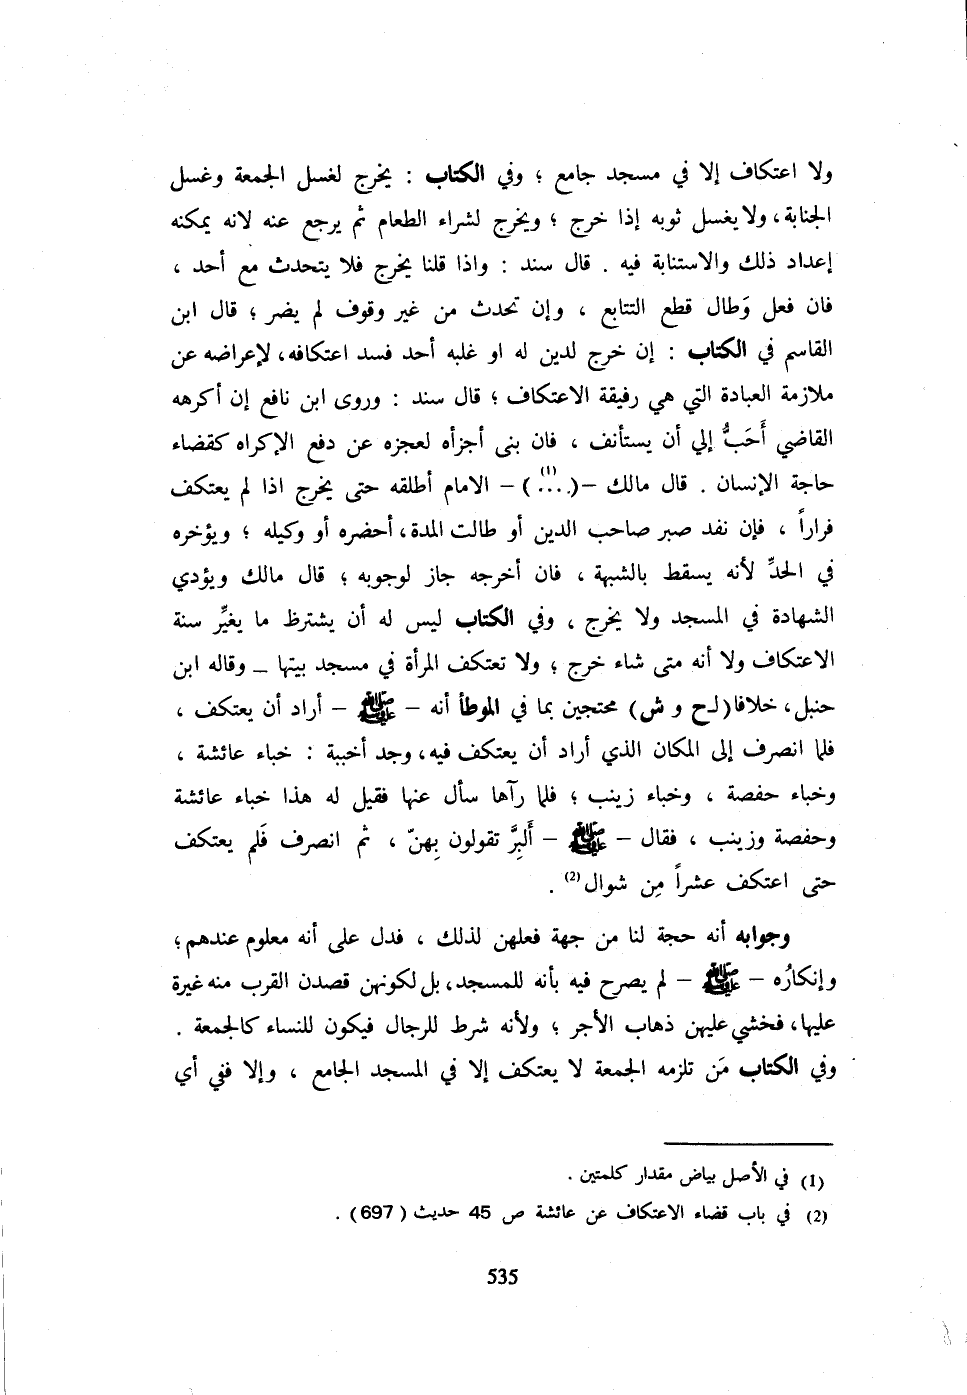 ولا اعتكاف إلا في مسجد جامع ؛ وفي الكتاب : يخرج لغسل الجمعة وغسل
الجنابة، ولا يغسل ثوبه إذا خرج ؛ ويخرج لشراء الطعام ثم يرجع عنه لانه يمكنه
إعداد ذلك والاستنابة فيه . قال سند : واذا قلنا يخرج فلا يتحدث مع أحد ،
فان فعل وَطال قطع التتابع ، وإن تحدث من غير وقوف لم يضر ؛ قال ابن
القاسم في الكتاب : إن خرج لدين له او غلبه أحد فسد اعتكافه، لإعراضه عن
ملازمة العبادة التي هي رفيقة الاعتكاف ؛ قال سند : وروى ابن نافع إن أكرهه
القاضي أَحَبُّ إلي أن يستأنف ، فان بنى أجزأه لعجزه عن دفع الإكراه كقضاء
حاجة الإنسان . قال مالك –(....(1)) – الامام أطلقه حتى يخرج اذا لم يعتكف
فراراً ، فإن نفد صبر صاحب الدين أو طالت المدة، أحضره أو وكيله ؛ ويؤخره
في الحدِّ لأنه يسقط بالشبهة ، فان أخرجه جاز لوجوبه ؛ قال مالك ويؤدي
الشهادة في المسجد ولا يخرج ، وفي الكتاب ليس له أن يشترظ ما يغيِّر سنة
الاعتكاف ولا أنه متى شاء خرج ؛ ولا تعتكف المرأة في مسجد بيتها – وقاله ابن
حنبل، خلافا (لـح و ش) محتجين بما في الموطأ أنه – ﷺ – أراد أن يعتكف ،
فلما انصرف إلى المكان الذي أراد أن يعتكف فيه، وجد أخبية : خباء عائشة ،
وخباء حفصة ، وخباء زينب ؛ فلما رآها سأل عنها فقيل له هذا خباء عائشة
وحفصة وزينب ، فقال – ﷺ – أَلبِرَّ تقولون بِهنّ ، ثم انصرف فَلم يعتكف
حتى اعتكف عشراً مِن شوال(2) .
وجوابه أنه حجة لنا من جهة فعلهن لذلك ، فدل على أنه معلوم عندهم؛
وإنكارُه – ﷺ – لم يصرح فيه بأنه للمسجد، بل لكونهن قصدن القرب منه غيرة
عليها، فخشي عليهن ذهاب الأجر ؛ ولأنه شرط للرجال فيكون للنساء كالجمعة .
وفي الكتاب مَن تلزمه الجمعة لا يعتكف إلا في المسجد الجامع ، وإلا ففي أي
(1) في الأصل بياض مقدار كلمتين .
(2) في باب قضاء الاعتكاف عن عائشة ص 45 حديث (697) .
535